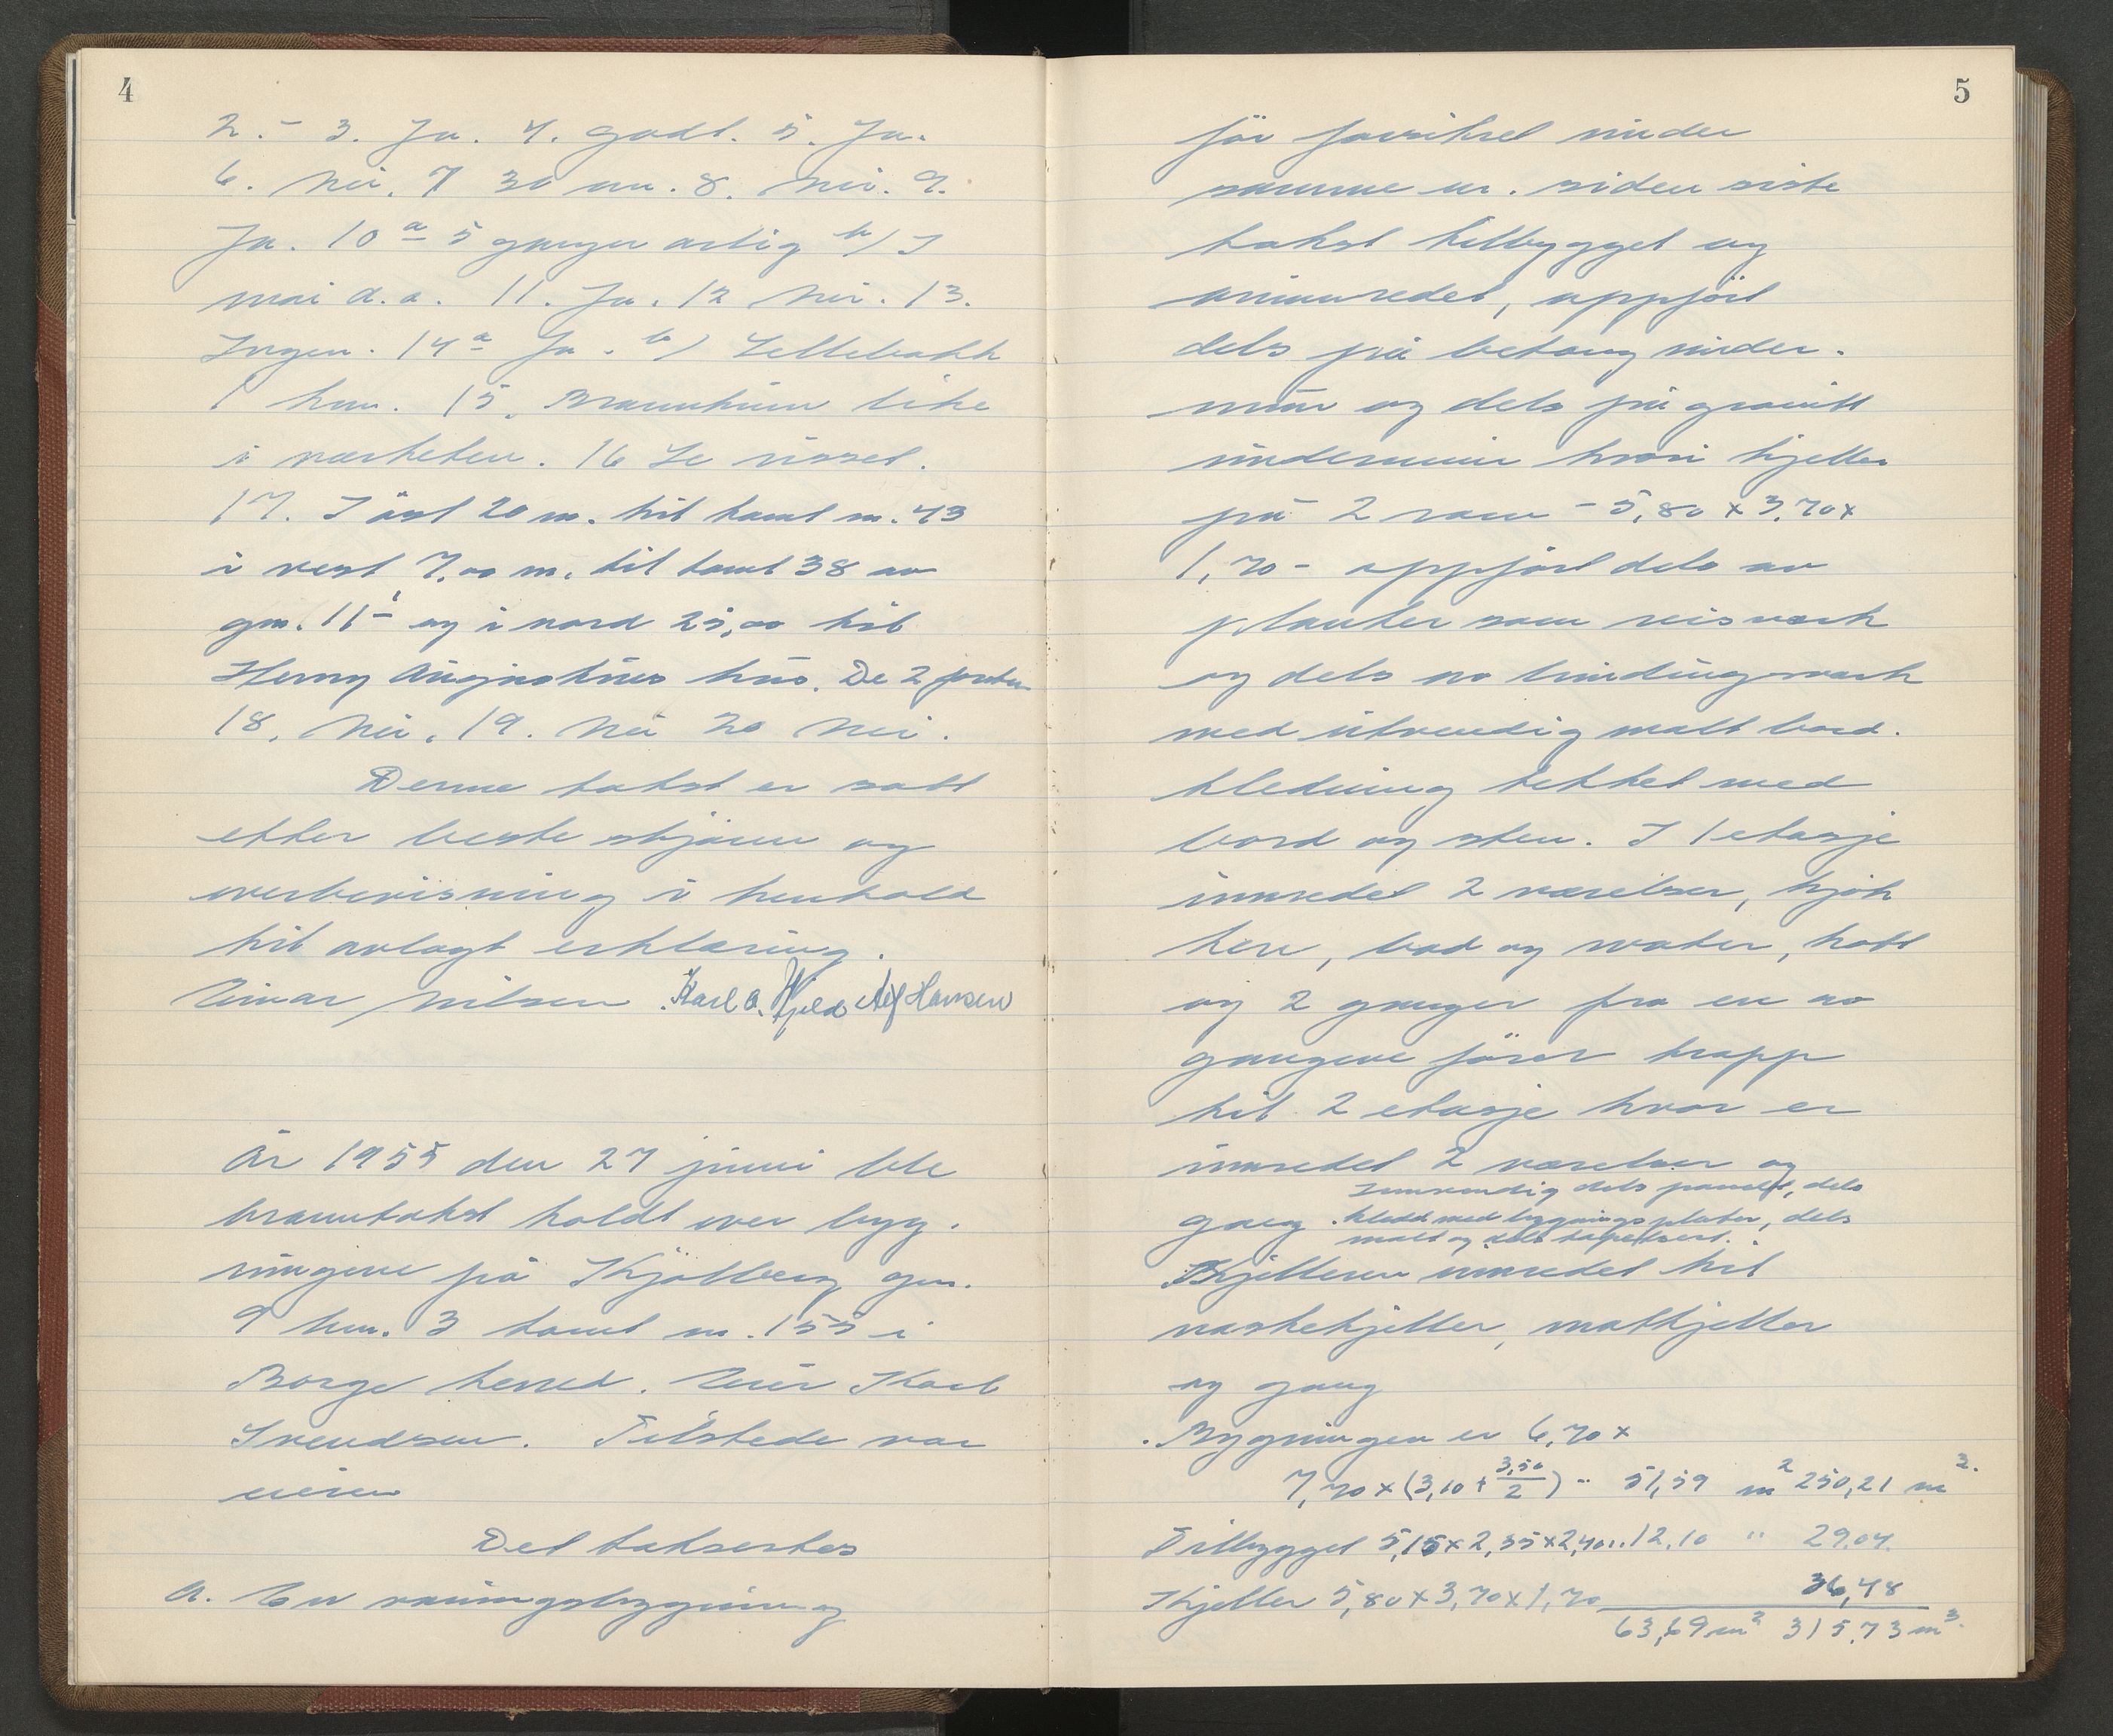 4
2. - 3. Ja. 4. godt. 5. Ja.
6. Nei. 7 30 cm. 8. Nei. 9.
Ja. 10 a 5 ganger årlig b/ I
mai d.a. 11. Ja. 12 Nei. 13.
Ingen. 14 a Ja. b/ Sellebakk
1 km. 15. Brannkum like
i nærheten. 16 Se risset.
17. I öst 20 m. til tomt nr. 43
i vest 7,00 m. til tomt 38 av
gnr. 11 og i nord 25,00 til
Henry Augustins hus. De 2 första
18. Nei. 19. Nei 20 Nei.
Denne takst er satt
etter beste skjönn og
overbevisning i henhold
til avlagt erklæring.
Einar Nilsen Karl O. Hjelo Alf Hansen
År 1955 den 27 juni ble
branntakst holdt over byg-
ningene på Kjölberg gnr.
9 bnr. 3 tomt nr. 155 i
Borge herred. Eier Karl
Svendsen. Tilstede var
eieren
Det takseres
A. En våningsbygning
5
för forsikret under
samme nr. siden siste
takst tilbygget og
ominnredet, oppfört
dels på betong under-
mur og dels på granitt
undermur hvori kjeller
på 2 rom - 5,80 x 3,70 x
1,70 - oppfört dels av
planker som reisverk
og dels av bindingsverk
med utvendig malt bord-
kledning tekket med
bord og sten. I 1 etasje
innredet 2 værelser, kjök
ken, bad og vater, kott
og 2 ganger fra en av
gangene förer trapp
til 2 etasje hvor er
innredet 2 værelser og
Innvendig dels panelt, dels
gang. kledt med bygningsplater, dels
malt og dels tapetsert.
Kjelleren innredet til
vaskekjeller, matkjeller
og gang
Bygningen er 6,70 x
7,70 x (3,10 + 3,50/2) = 51,59 m2 250,21 m3.
Tilbygget 5,15 x 2,35 x 2,40 .. 12,10 " 29,04.
Kjeller 5,80 x 3,70 x 1,70 36,48
63,69 m2 315,73 m3.